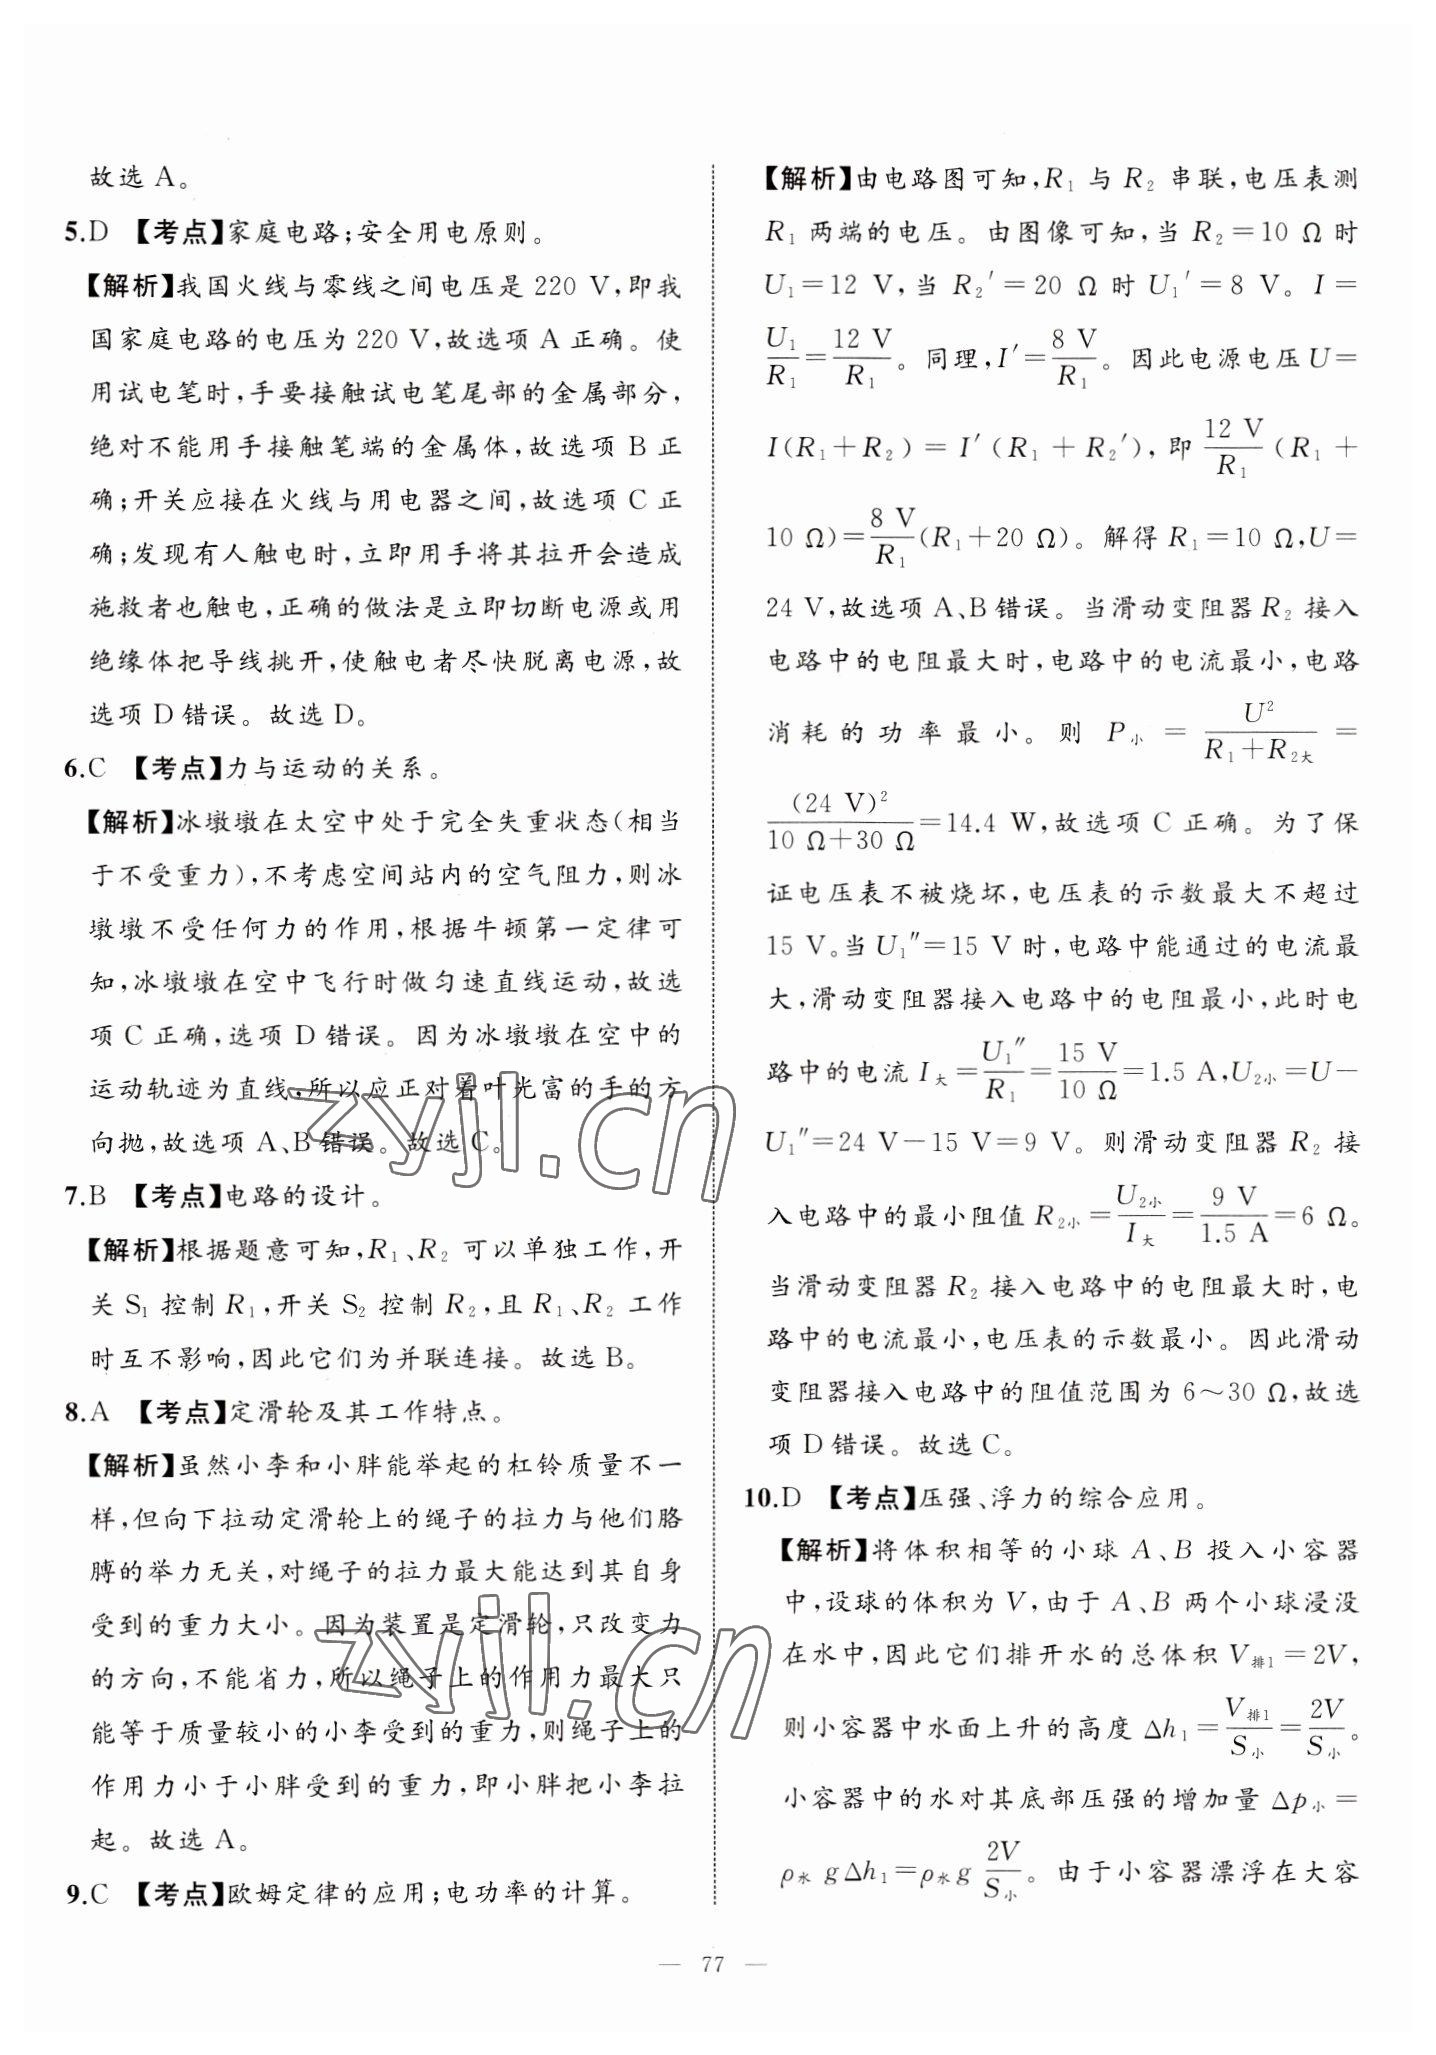 故选 A。
5.D 【考点】家庭电路;安全用电原则。
【解析】我国火线与零线之间电压是 220 V,即我
国家庭电路的电压为 220 V,故选项 A 正确。使
用试电笔时,手要接触试电笔尾部的金属部分,
绝对不能用手接触笔端的金属体,故选项 B 正
确;开关应接在火线与用电器之间,故选项 C 正
确;发现有人触电时,立即用手将其拉开会造成
施救者也触电,正确的做法是立即切断电源或用
绝缘体把导线挑开,使触电者尽快脱离电源,故
选项 D 错误。故选 D。
6.C 【考点】力与运动的关系。
【解析】冰墩墩在太空中处于完全失重状态(相当
于不受重力),不考虑空间站内的空气阻力,则冰
墩墩不受任何力的作用,根据牛顿第一定律可
知,冰墩墩在空中飞行时做匀速直线运动,故选
项 C 正确,选项 D 错误。因为冰墩墩在空中的
运动轨迹为直线,所以应正对着叶光富的手的方
向抛,故选项 A、B 错误。故选 C。
7.B 【考点】电路的设计。
【解析】根据题意可知,R₁、R₂ 可以单独工作,开
关 S₁ 控制 R₁,开关 S₂ 控制 R₂,且 R₁、R₂ 工作
时互不影响,因此它们为并联连接。故选 B。
8.A 【考点】定滑轮及其工作特点。
【解析】虽然小李和小胖能举起的杠铃质量不一
样,但向下拉动定滑轮上的绳子的拉力与他们胳
膊的举力无关,对绳子的拉力最大能达到其自身
受到的重力大小。因为装置是定滑轮,只改变力
的方向,不能省力,所以绳子上的作用力最大只
能等于质量较小的小李受到的重力,则绳子上的
作用力小于小胖受到的重力,即小胖把小李拉
起。故选 A。
9.C 【考点】欧姆定律的应用;电功率的计算。
【解析】由电路图可知,R₁ 与 R₂ 串联,电压表测
R₁ 两端的电压。由图像可知,当 R₂=10 Ω 时
U₁=12 V,当 R₂′=20 Ω 时 U₁′=8 V。I=
U₁/R₁=12 V/R₁。同理,I′=8 V/R₁。因此电源电压 U=
I(R₁+R₂)=I′(R₁+R₂′),即 12 V/R₁(R₁+
10 Ω)=8 V/R₁(R₁+20 Ω)。解得 R₁=10 Ω,U=
24 V,故选项 A、B 错误。当滑动变阻器 R₂ 接入
电路中的电阻最大时,电路中的电流最小,电路
消耗的功率最小。则 P小=U²/(R₁+R₂大)=
(24 V)²/(10 Ω+30 Ω)=14.4 W,故选项 C 正确。为了保
证电压表不被烧坏,电压表的示数最大不超过
15 V。当 U₁″=15 V 时,电路中能通过的电流最
大,滑动变阻器接入电路中的电阻最小,此时电
路中的电流 I大=U₁″/R₁=15 V/10 Ω=1.5 A,U₂小=U−
U₁″=24 V−15 V=9 V。则滑动变阻器 R₂ 接
入电路中的最小阻值 R₂小=U₂小/I大=9 V/1.5 A=6 Ω。
当滑动变阻器 R₂ 接入电路中的电阻最大时,电
路中的电流最小,电压表的示数最小。因此滑动
变阻器接入电路中的阻值范围为 6～30 Ω,故选
项 D 错误。故选 C。
10.D 【考点】压强、浮力的综合应用。
【解析】将体积相等的小球 A、B 投入小容器
中,设球的体积为 V,由于 A、B 两个小球浸没
在水中,因此它们排开水的总体积 V排1=2V,
则小容器中水面上升的高度 Δh₁=V排1/S小=2V/S小。
小容器中的水对其底部压强的增加量 Δp小=
ρ水 gΔh₁=ρ水g 2V/S小。由于小容器漂浮在大容
— 77 —
zyjl.cn
zyjl.cn